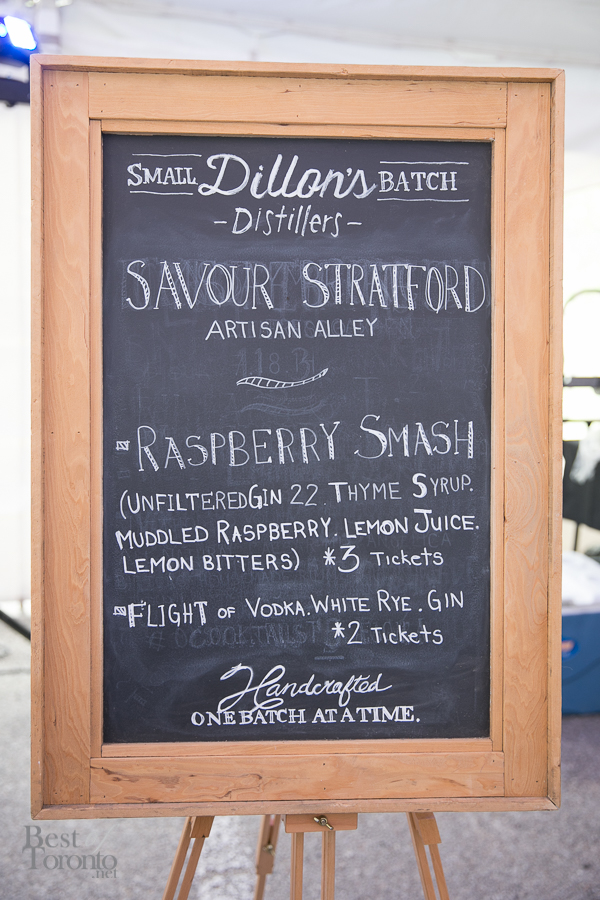 SMALL Dillon's BATCH
-Distillers-
SAVOUR STRATFORD
ARTISAN ALLEY
RASPBERRY SMASH
(UNFILTERED GIN 22. THYME SYRUP.
MUDDLED RASPBERRY. LEMON JUICE.
LEMON BITTERS) *3 Tickets
FLIGHT OF VODKA. WHITE RYE. GIN
*2 Tickets
Handcrafted
ONE BATCH AT A TIME.
BEST
TORONTO
.net